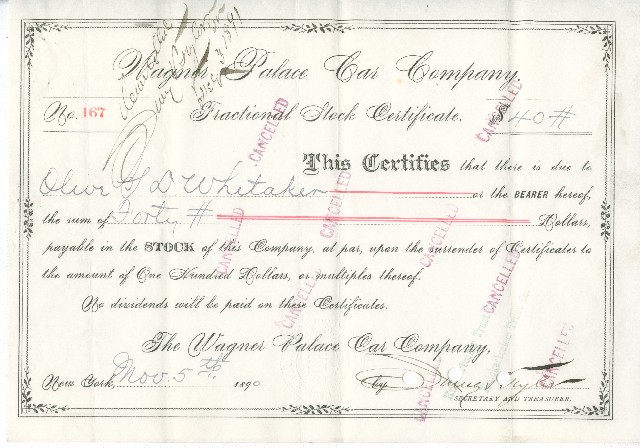 Wagner Palace Car Company.
No. 167 Fractional Stock Certificate. $40#
This Certifies that there is due to
Olive G D Whitaker or the BEARER hereof,
the sum of Forty # Dollars,
payable in the STOCK of this Company, at par, upon the surrender of Certificates to
the amount of One Hundred Dollars, or multiples thereof.
No dividends will be paid on these Certificates.
The Wagner Palace Car Company,
New York, Nov. 5th. 1890 by
SECRETARY AND TREASURER.
CANCELLED
CANCELLED
CANCELLED
CANCELLED
CANCELLED
CANCELLED
CANCELLED
CANCELLED
CANCELLED